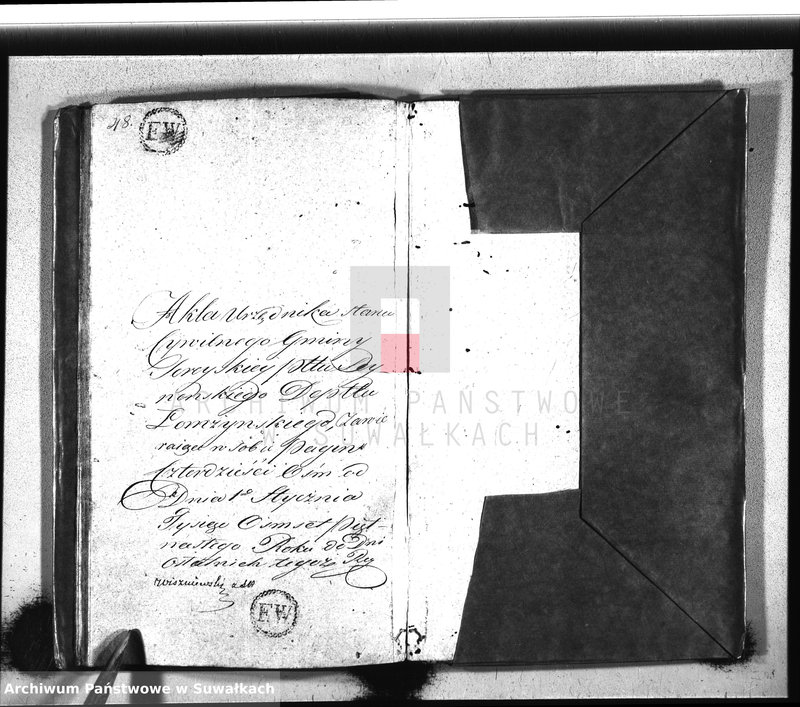 48.
EW
Akta Urzędnika stanu
Cywilnego Gminy
Sereyskiey pttu Sey
neńskiego Depttu
Łomzynskiego, Zawie
raiąca w sobie Pagin
Czterdzieści Ośm od
Dnia 1º Stycznia
Tysiąc Osmset Pięt-
nastego Roku do Dni
Ostatnich tegoż Ro
EW
ARCHIWUM PAŃSTWOWE
W SUWAŁKACH
Archiwum Państwowe w Suwałkach